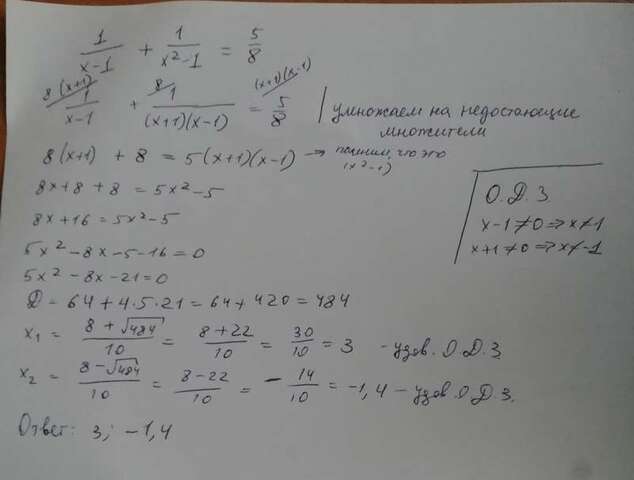 1/(x-1) + 1/(x²-1) = 5/8
8(x+1)/ 1/(x-1) + 8/ 1/((x+1)(x-1)) = (x+1)(x-1)/ 5/8 | умножаем на недостающие
множители
8(x+1) + 8 = 5(x+1)(x-1) → помним, что это
(x²-1)
8x+8+8 = 5x²-5
8x+16=5x²-5
5x²-8x-5-16=0
5x²-8x-21=0
D = 64+4·5·21=64+420=484
x₁ = (8+√484)/10 = (8+22)/10 = 30/10 = 3 - удов. О.Д.З.
x₂ = (8-√484)/10 = (8-22)/10 = -14/10 = -1,4 - удов. О.Д.З.
Ответ: 3; -1,4
О.Д.З.
x-1≠0⇒x≠1
x+1≠0⇒x≠-1